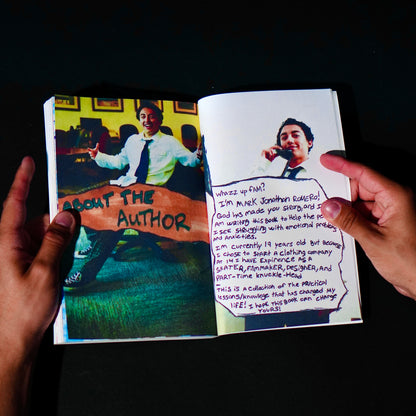 ABOUT THE
AUTHOR
whazz up FAM?
I'm MARK Jonathon ROMERO!
God has made you strong, and I
AM writing this Book to Help the
I see struggling with emotional
and Anxieties.
I'm currently 19 years old But because
I chose to start a clothing company
At 14 I have Experience as a
SKATER, FILMMAKER, DESIGNER, and
PART-Time knuckle-Head
This is a collection of the PRACTICAL
lessons/knowledge that has changed My
LIFE! I hope this Book can change
YOURS!